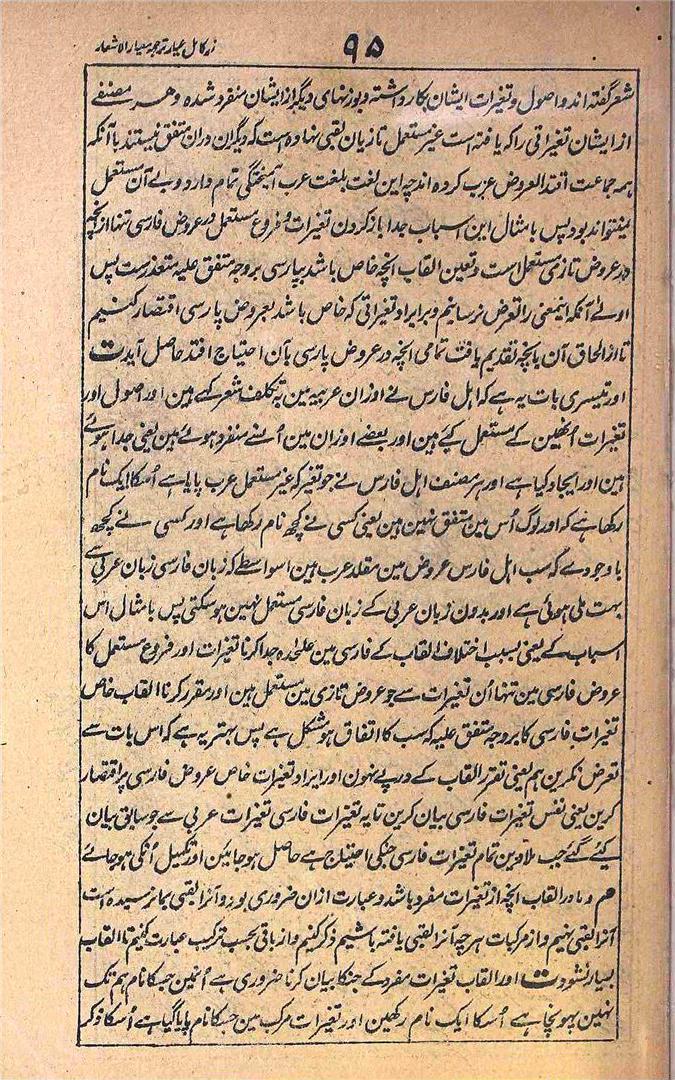 زر کامل عیار ترجمہ معیار الاشعار
۹۵
شعر گفته اند و اصول و تغیرات ایشان بکار داشته و بوزنهای دیگر از ایشان منفرد شده و هر مصنفے
از ایشان تغیراتی را که یافته است غیر مستعمل تازیان لقبی نهاده است که دیگران دران متفق نیستند با آنکه
همه جماعت اقتدا بعروض عرب کرده اند چه این لغت بلغت عرب آمیختگی تمام دارد و بے آن مستعمل
نمیتواند بود پس با مثال این اسباب جدا باز کردن تغیرات و فروع مستعمل در عروض فارسی تنها از انچه
در عروض تازی مستعمل است و تعین القاب انچه خاص باشد بپارسی بر وجه متفق علیه متعذرست پس
اولے آنکه اینمعنی را تعرض نرسانیم و بر ایراد تغیراتی که خاص باشد بعروض پارسی اقتصار کنیم
تا از الحاق آن بانچه تقدیم یافت تمامی انچه در عروض پارسی بآن احتیاج افتد حاصل آید ت
اور تیسری بات یہ ہے کہ اہل فارس نے اوزان عربیہ مین بہ تکلف شعر کہے ہین اور اصول اور
تغیرات اُنھین کے مستعمل کیے ہین اور بعضے اوزان مین اُنسے منفرد ہوئے ہین یعنی جدا ہوئے
ہین اور ایجاد کیا ہے اور ہر مصنف اہل فارس نے جو تغیر کہ غیر مستعمل عرب پایا ہے اُسکا ایک نام
رکھا ہے کہ اور لوگ اُس مین متفق نہین ہین یعنی کسی نے کچھ نام رکھا ہے اور کسی نے کچھ
باوجودے کہ سب اہل فارس عروض مین مقلد عرب ہین اسواسطے کہ زبان فارسی زبان عربی سے
بہت ملی ہوئی ہے اور بدون زبان عربی کے زبان فارسی مستعمل نہین ہوسکتی پس با مثال اس
اسباب کے یعنی بسبب اختلاف القاب کے فارسی مین علحدہ جدا کرنا تغیرات اور فروع مستعمل کا
عروض فارسی مین تنہا اُن تغیرات سے جو عروض تازی مین مستعمل ہین اور مقرر کرنا القاب خاص
تغیرات فارسی کا بر وجہ متفق علیہ کہ سب کا اتفاق ہو مشکل ہے پس بہتر یہ ہے کہ اس بات سے
تعرض نکرین ہم یعنی تقرر القاب کے درپے نہون اور ایراد تغیرات خاص عروض فارسی پر اقتصار
کرین یعنی نفس تغیرات فارسی بیان کرین تا یہ تغیرات فارسی تغیرات عربی سے جو سابق بیان
کیے گئے جب ملاوین تمام تغیرات فارسی جنکی احتیاج ہے حاصل ہو جائین اور تکمیل اُنکی ہو جائے
هم و ما در القاب انچه از تغیرات مفرد باشد و عبارت ازان ضروری بود و آنرا لقبی بما نرسیده است
آنرا لقبی نهیم و از مرکبات هر چه آنرا لقبی یافته باشیم ذکر کنیم و از باقی بحسب ترکیب عبارت کنیم تا القاب
بسیار نشود ت اور القاب تغیرات مفرد کے جنکا بیان کرنا ضروری ہے اُنمین جسکا نام ہم تک
نہین پہونچا ہے اُسکا ایک نام رکھین اور تغیرات مرکب مین جسکا نام پایا گیا ہے اُسکا ذکر